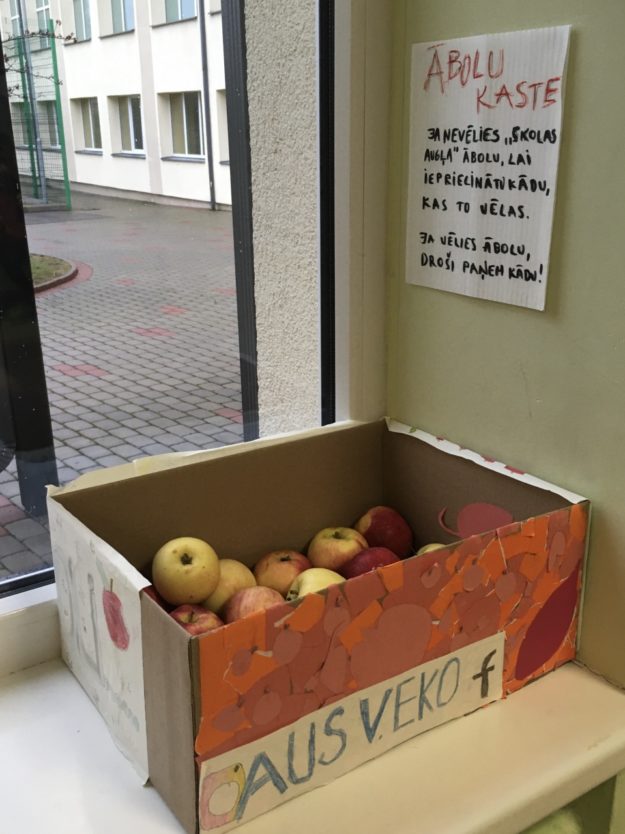 ĀBOLU
KASTE
JA NEVĒLIES „SKOLAS
AUGĻA" ĀBOLU, LAI
IEPRIECINĀTU KĀDU,
KAS TO VĒLAS.
JA VĒLIES ĀBOLU,
DROŠI PAŅEM KĀDU!
AUSV.EKO f